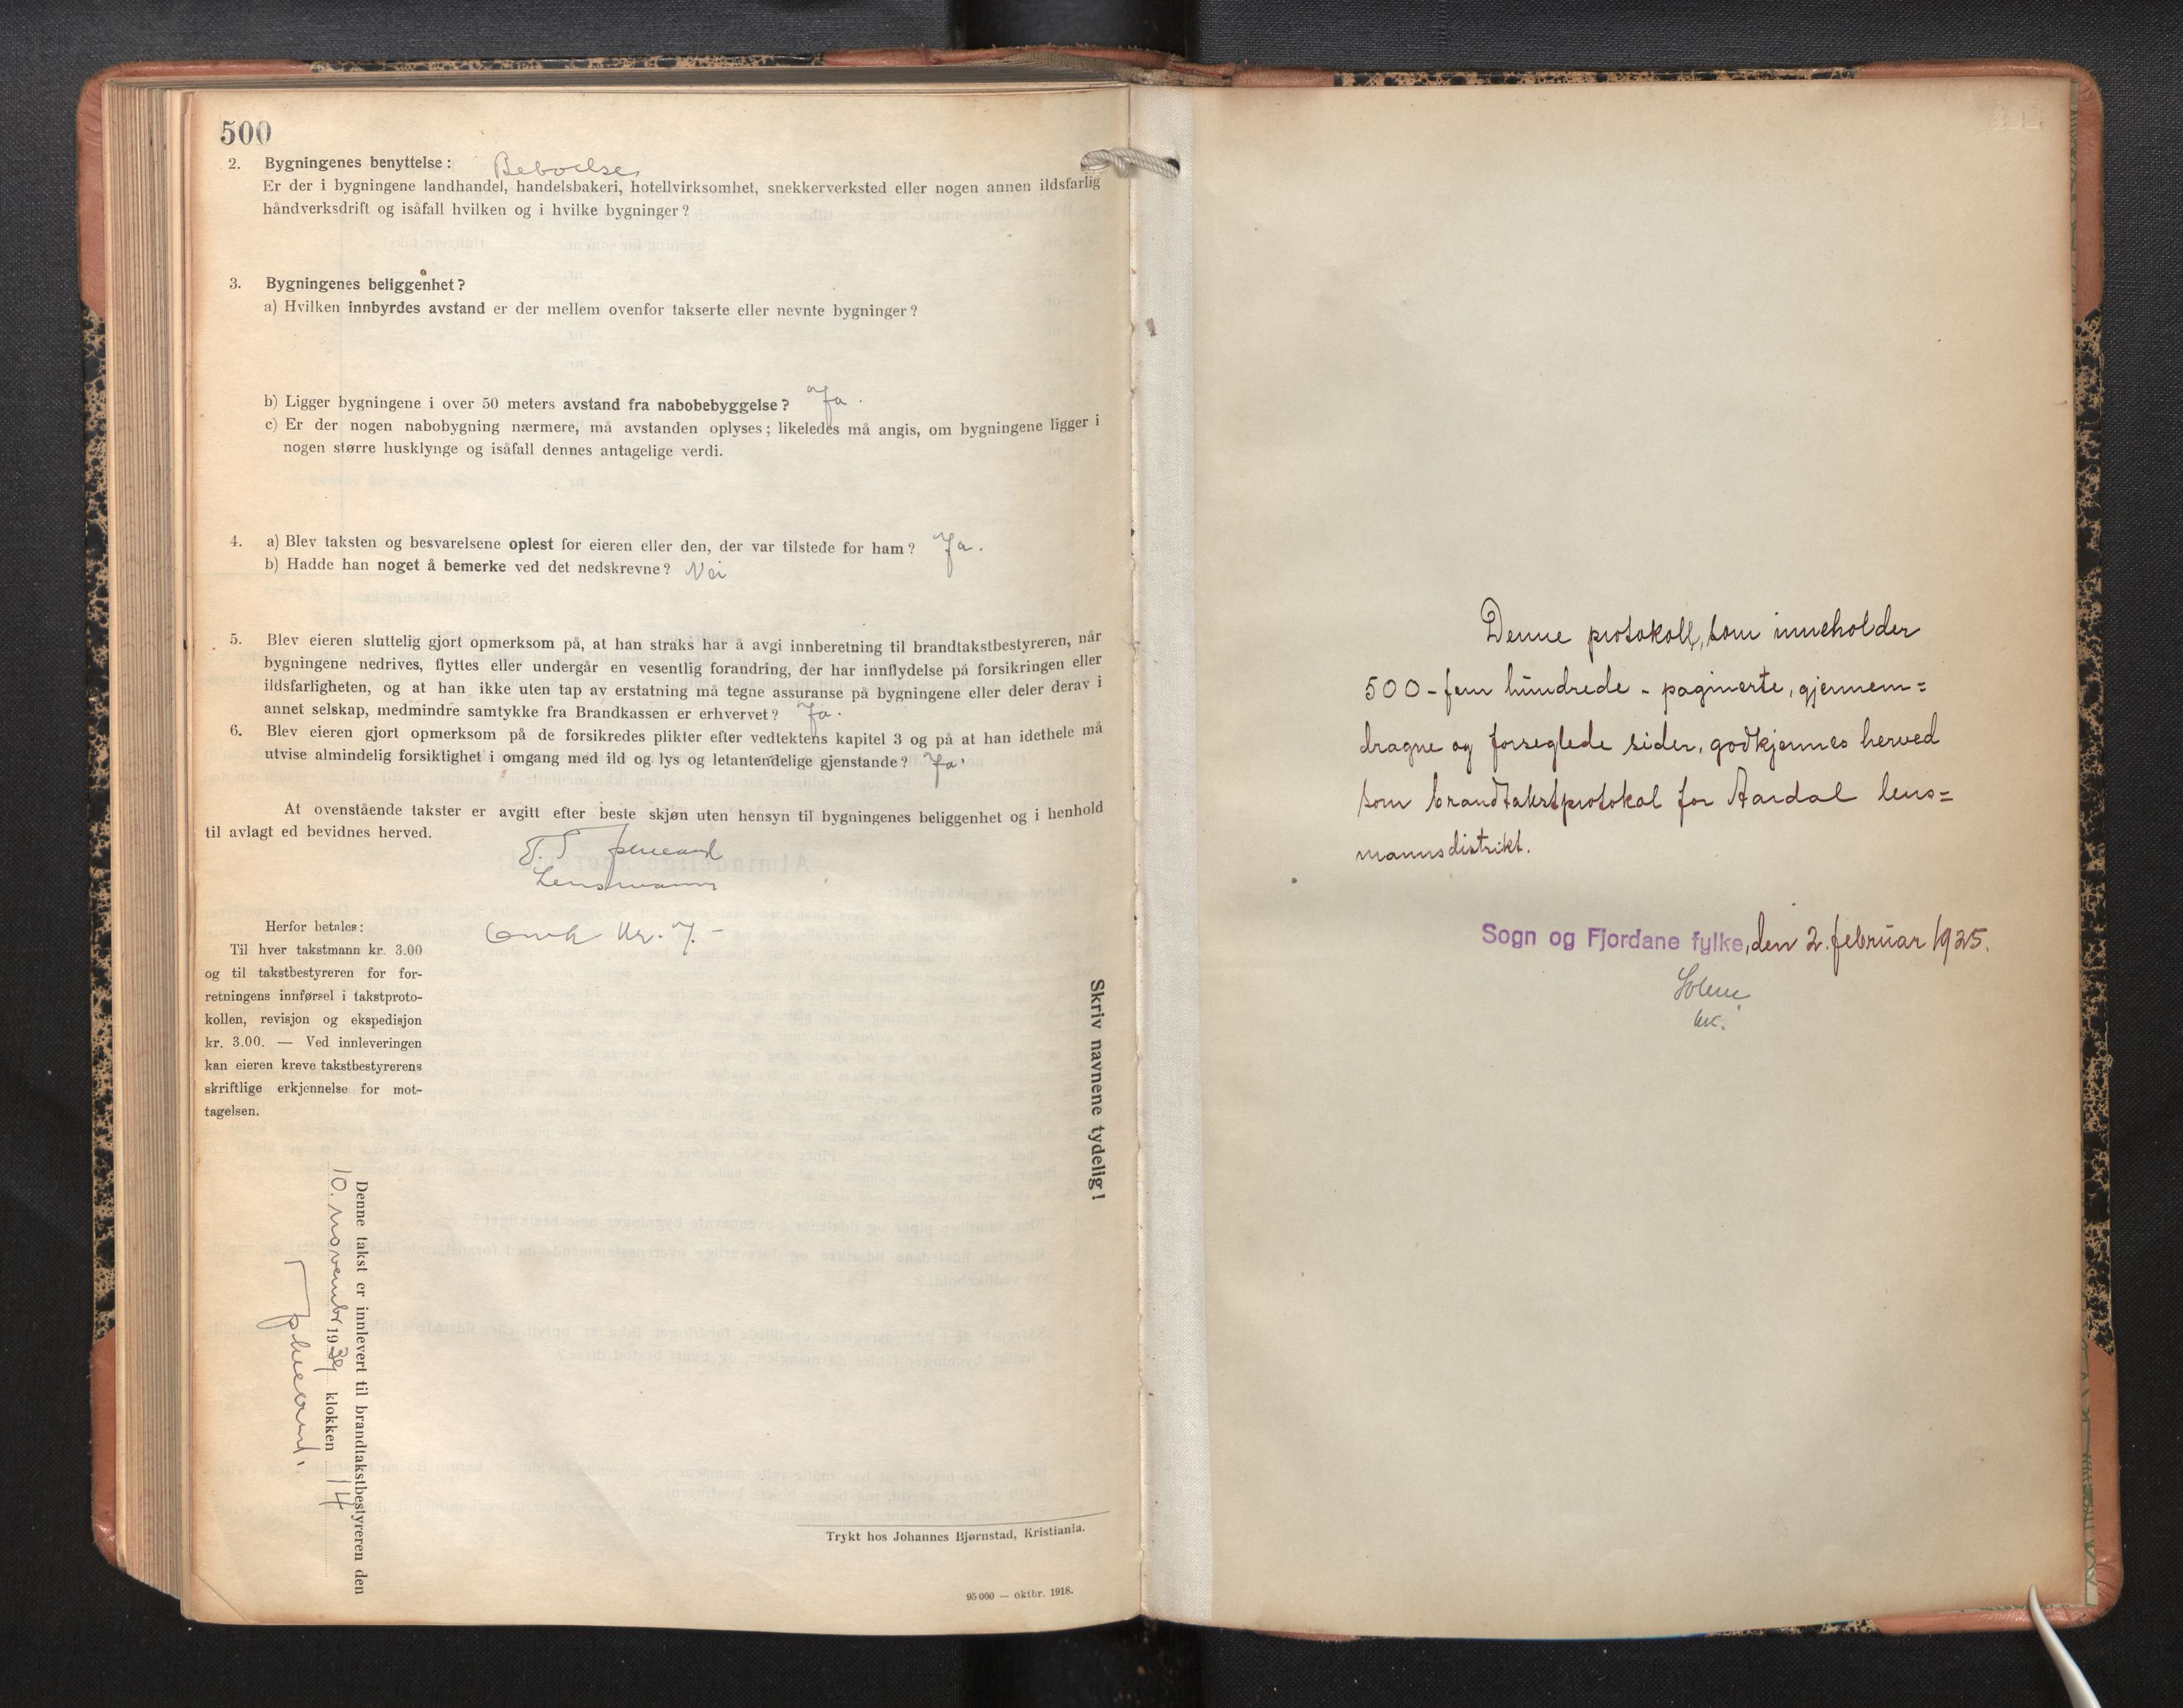 500
2. Bygningenes benyttelse: Beboelse
Er der i bygningene landhandel, handelsbakeri, hotellvirksomhet, snekkerverksted eller nogen annen ildsfarlig
håndverksdrift og isåfall hvilken og i hvilke bygninger?
3. Bygningenes beliggenhet?
a) Hvilken innbyrdes avstand er der mellem ovenfor takserte eller nevnte bygninger?
b) Ligger bygningene i over 50 meters avstand fra nabobebyggelse? Ja.
c) Er der nogen nabobygning nærmere, må avstanden oplyses; likeledes må angis, om bygningene ligger i
nogen større husklynge og isåfall dennes antagelige verdi.
4. a) Blev taksten og besvarelsene oplest for eieren eller den, der var tilstede for ham? Ja.
b) Hadde han noget å bemerke ved det nedskrevne? Nei
5. Blev eieren sluttelig gjort opmerksom på, at han straks har å avgi innberetning til brandtakstbestyreren, når
bygningene nedrives, flyttes eller undergår en vesentlig forandring, der har innflydelse på forsikringen eller
ildsfarligheten, og at han ikke uten tap av erstatning må tegne assuranse på bygningene eller deler derav i
annet selskap, medmindre samtykke fra Brandkassen er erhvervet? Ja.
6. Blev eieren gjort opmerksom på de forsikredes plikter efter vedtektens kapitel 3 og på at han idethele må
utvise almindelig forsiktighet i omgang med ild og lys og letantendelige gjenstande? Ja.
At ovenstående takster er avgitt efter beste skjøn uten hensyn til bygningenes beliggenhet og i henhold
til avlagt ed bevidnes herved.
Lensmann
Kr. 7.-
Herfor betales:
Til hver takstmann kr. 3.00
og til takstbestyreren for for-
retningens innførsel i takstproto-
kollen, revisjon og ekspedisjon
kr. 3.00. — Ved innleveringen
kan eieren kreve takstbestyrerens
skriftlige erkjennelse for mot-
tagelsen.
Skriv navnene tydelig!
Denne takst er innlevert til brandtakstbestyreren den
10. november 1939 klokken 14
Trykt hos Johannes Bjørnstad, Kristiania.
95 000 — oktbr. 1918.
Denne protokoll, som inneholder
500 - fem hundrede - paginerte, gjennem=
dragne og forseglede sider, godkjennes herved
som brandtakstprotokol for Aardal lens=
mannsdistrikt.
Sogn og Fjordane fylke, den 2. februar 1925.